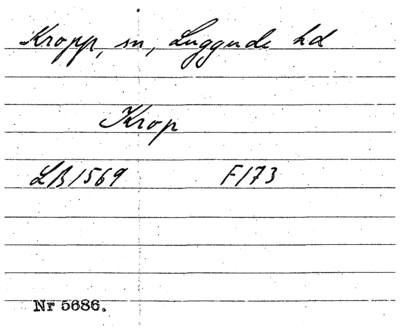 Kropp, sn, Luggude hd
Krop
LB 1569 F173
Nr 5686.